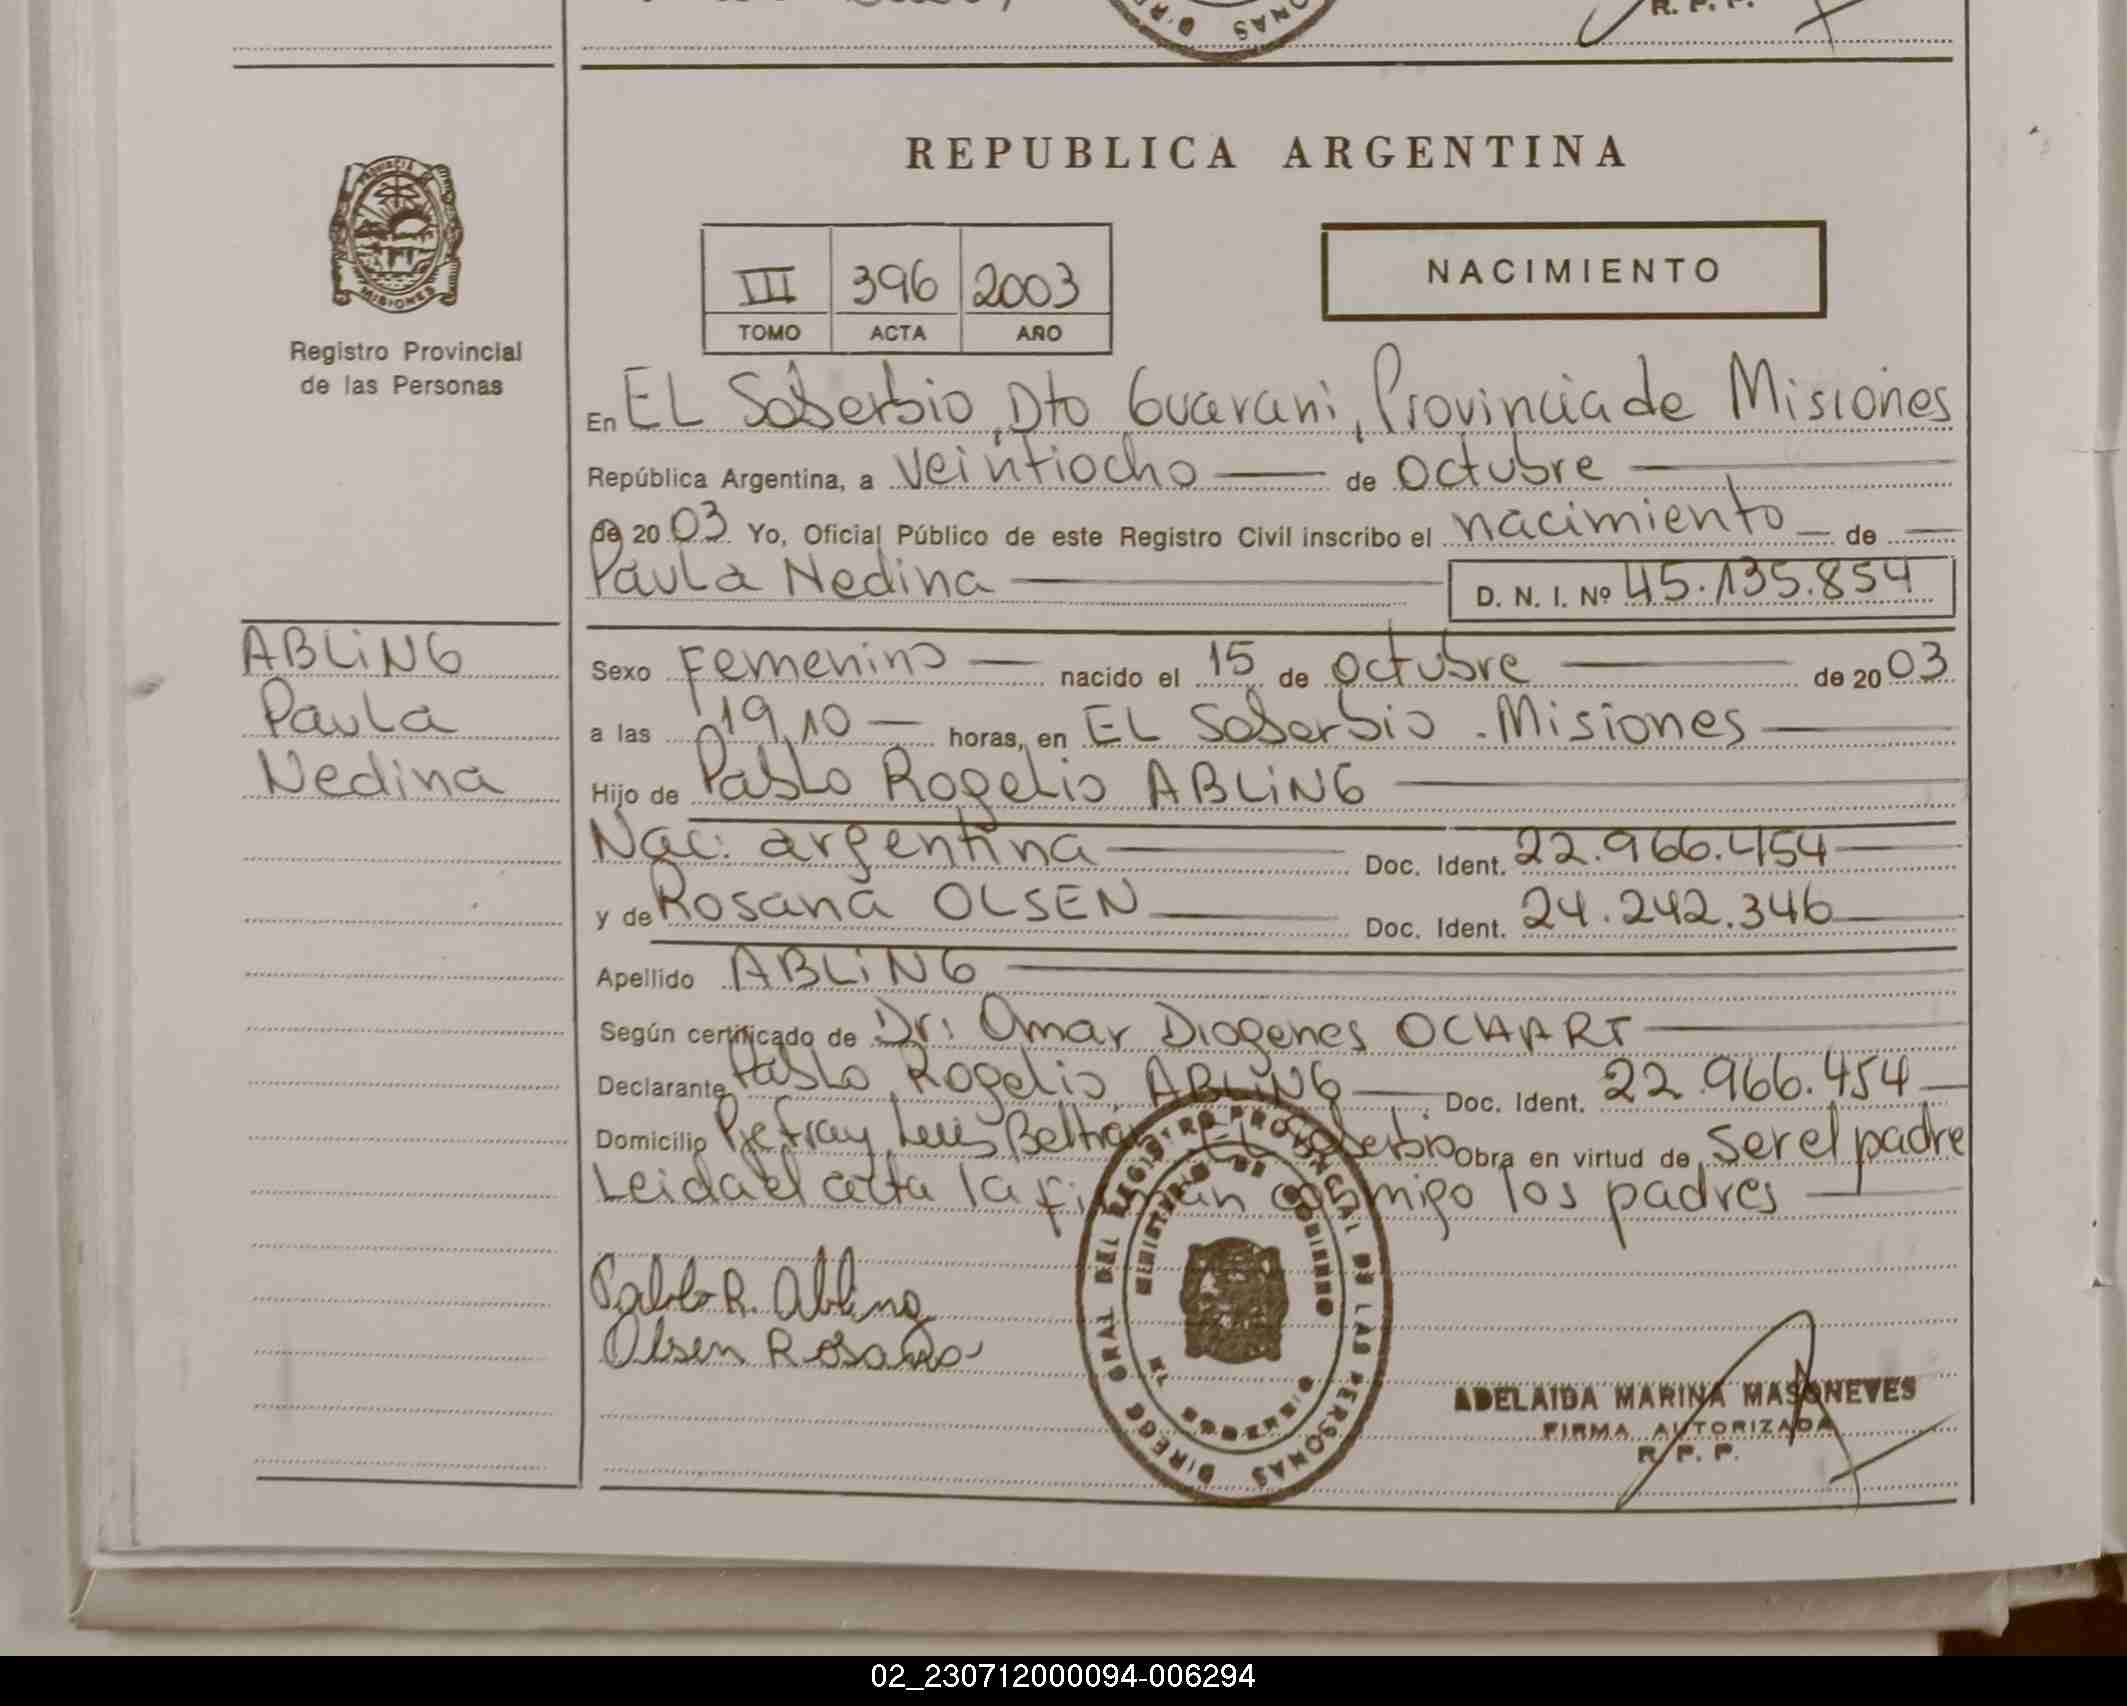 R. P. P.
REPUBLICA ARGENTINA
PROVINCIA DE
MISIONES
Registro Provincial
de las Personas
III 396 2003
TOMO ACTA AÑO
NACIMIENTO
En EL Soberbio, Dto Guaraní, Provincia de Misiones
República Argentina, a veintiocho — de octubre —
de 20 03 Yo, Oficial Público de este Registro Civil inscribo el nacimiento — de —
Paula Nedina — D. N. I. Nº 45.135.854
ABLiNG
Paula
Nedina
Sexo Femenino — nacido el 15 de octubre — de 20 03
a las 19,10 — horas, en EL Soberbio - Misiones —
Hijo de Pablo Rogelio ABLiNG —
Nac: argentina — Doc. Ident. 22.966.454 —
y de Rosana OLSEN — Doc. Ident. 24.242.346 —
Apellido ABLiNG —
Según certificado de Dr: Omar Diogenes OCHART —
Declarante Pablo Rogelio ABLiNG — Doc. Ident. 22.966.454 —
Domicilio fray Luis Beltrán El Soberbio Obra en virtud de ser el padre
Leida el acta la firman conmigo los padres —
Pablo R. Abling
Olsen Rosana
DIRECC GRAL DEL REGISTRO PROVINCIAL DE LAS PERSONAS
MINISTERIO DE GOBIERNO
ADELAIDA MARINA MASONEVES
FIRMA AUTORIZADA
R. P. P.
02_230712000094-006294